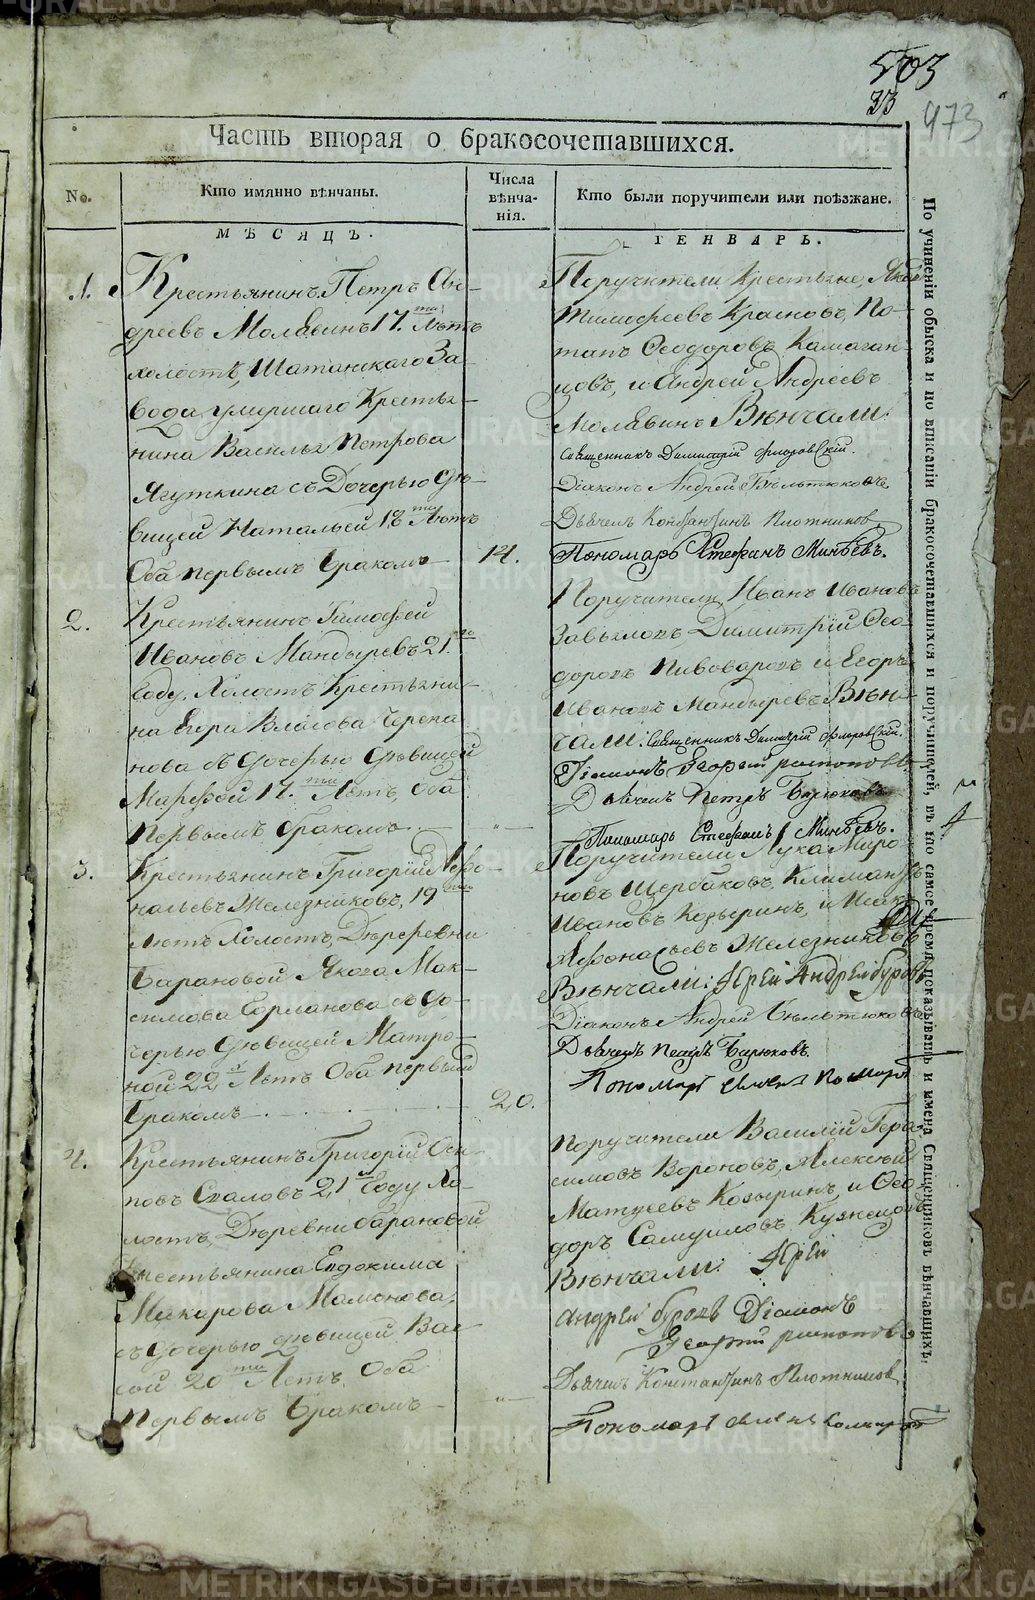 503
33
473
Часть вторая о бракосочетавшихся.
No.
Кто имянно вѣнчаны.
Числа вѣнча-нія.
Кто были поручители или поѣзжане.
МѢСЯЦЪ.
ГЕНВАРЬ.
1.
Крестьянинъ Петръ Ан-
дреевъ Молявинъ 17.ти Лѣтъ
холостъ, Шатанскаго За-
вода умершаго Крестья-
нина Василья Петрова
Ягуткина съ Дочерью дѣ-
вицей Натальей 18ти Лѣтъ
Оба первымъ бракомъ
14.
Поручители Крестьяне,
Тимофеевъ Красновъ, По-
тапъ Ѳеодоровъ Камаган-
цовъ, и Андрей Андреевъ
Молявинъ Вѣнчали:
священникъ Димитрій Флоровскій.
Діаконъ Андрей
Дьячекъ Константинъ Плотниковъ
Пономарь Стефанъ Минѣевъ.
2.
Крестьянинъ Тимофей
Ивановъ Мандыревъ 21.го
Году, Холостъ Крестьяни-
на Егора Власова Черепа
нова съ дочерью дѣвицей
Марфой 17.ти Лѣтъ, Оба
Первымъ бракомъ
Поручители, Иванъ Ивановъ
Завьяловъ, Димитрій Ѳео-
доровъ Пивоваровъ и Егоръ
Ивановъ Мандыревъ Вѣн-
чали: Священникъ Димитрій Флоровскій.
Діаконъ Георгій
Дьячекъ Петръ Бирюковъ
Пономарь Стефанъ Минѣевъ.
3.
Крестьянинъ Григорій Афо-
насьевъ Железниковъ, 19ти
Лѣтъ Холостъ, Деревни
Барановой Якова Мак-
симова съ до-
черью дѣвицей Матро-
ной 22 Лѣтъ Оба первымъ
Бракомъ
20.
Поручители Лука Миро
новъ Щербаковъ, Климантъ
Ивановъ Козыринъ, и Исакъ
Афонасьевъ Железниковъ
Вѣнчали: Іерей Андрей Буровъ
Діаконъ Андрей
Дьячекъ Петръ Бирюковъ.
Пономарь
4.
Крестьянинъ Григорій Оси-
повъ 21 Году Хо-
лостъ, Деревни Барановой
Крестьянина Евдокима
Макарова Мамонова,
съ дочерью дѣвицей Вас-
сой 20ти Лѣтъ Оба
первымъ Бракомъ
Поручители Василій Гера-
симовъ Вороновъ, Алексѣй
Матвеевъ Козыринъ, и Ѳео-
доръ Самуиловъ Кузнецовъ
Вѣнчали: Іерей
Андрей Буровъ Діаконъ
Георгій
Дьячекъ Константинъ Плотниковъ
Пономарь
По учиненіи обыска и по вписаніи бракосочетавшихся и поручителей, въ то самое время показывать и имена Священниковъ вѣнчавшихъ.
METRIKI.GASO-URAL.RU